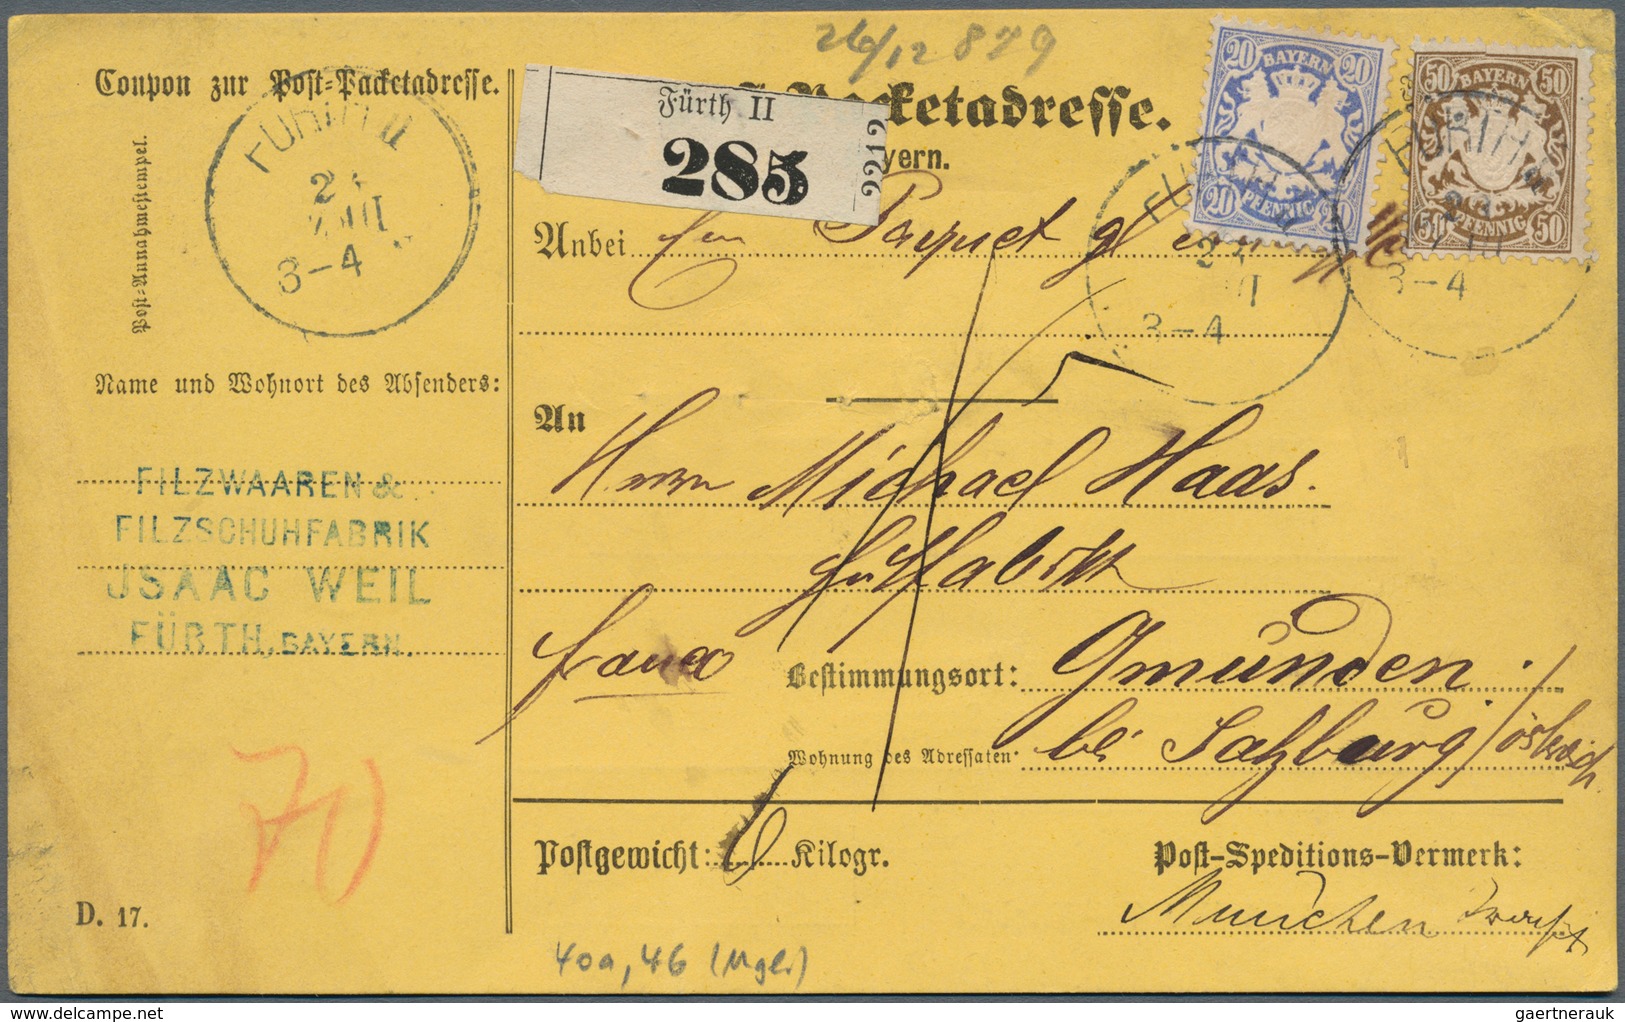 26/12 879
Coupon zur Post-Packetadresse.
Post-Annahmestempel.
FÜRTH II
2
VIII
3-4
Name und Wohnort des Absenders:
FILZWAAREN &
FILZSCHUHFABRIK
JSAAC WEIL
FÜRTH, BAYERN.
70
D. 17.
Fürth II
285
2212
Packetadresse.
yern.
20 BAYERN 20
20 PFENNIG 20
50 BAYERN 50
50 PFENNIG 50
3-4
3-4
Anbei ein Paquet
An
Herrn Michael Haas.
Hutfabrik
franco
Bestimmungsort: Gmünden
Wohnung des Adressaten: bei Salzburg / östreich
Postgewicht: 6 Kilogr.
Post-Speditions-Vermerk:
Munchen
40a, 46 (Mgl.)
gaertnerauk